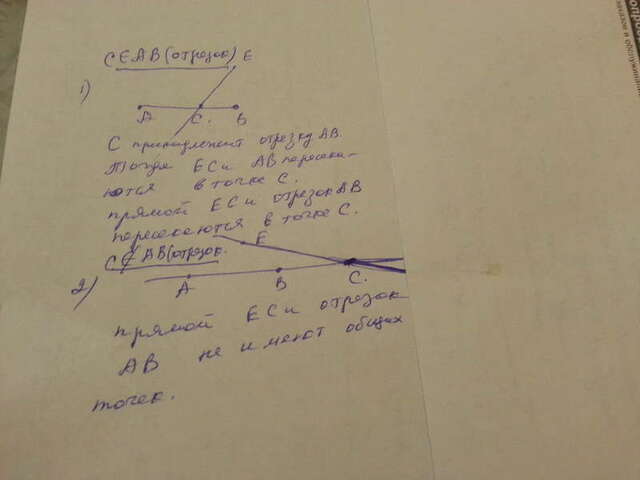 C∈AB(отрезок) E
1)
A C. B
C принадлежит отрезку AB.
Тогда EC и AB пересека-
ются в точке C.
прямой EC и отрезок AB
пересекаются в точке C.
E
C∉AB(отрезок.
2)
A B C.
прямой EC и отрезок
AB не имеют общих
точек.
заказов и обслуживание